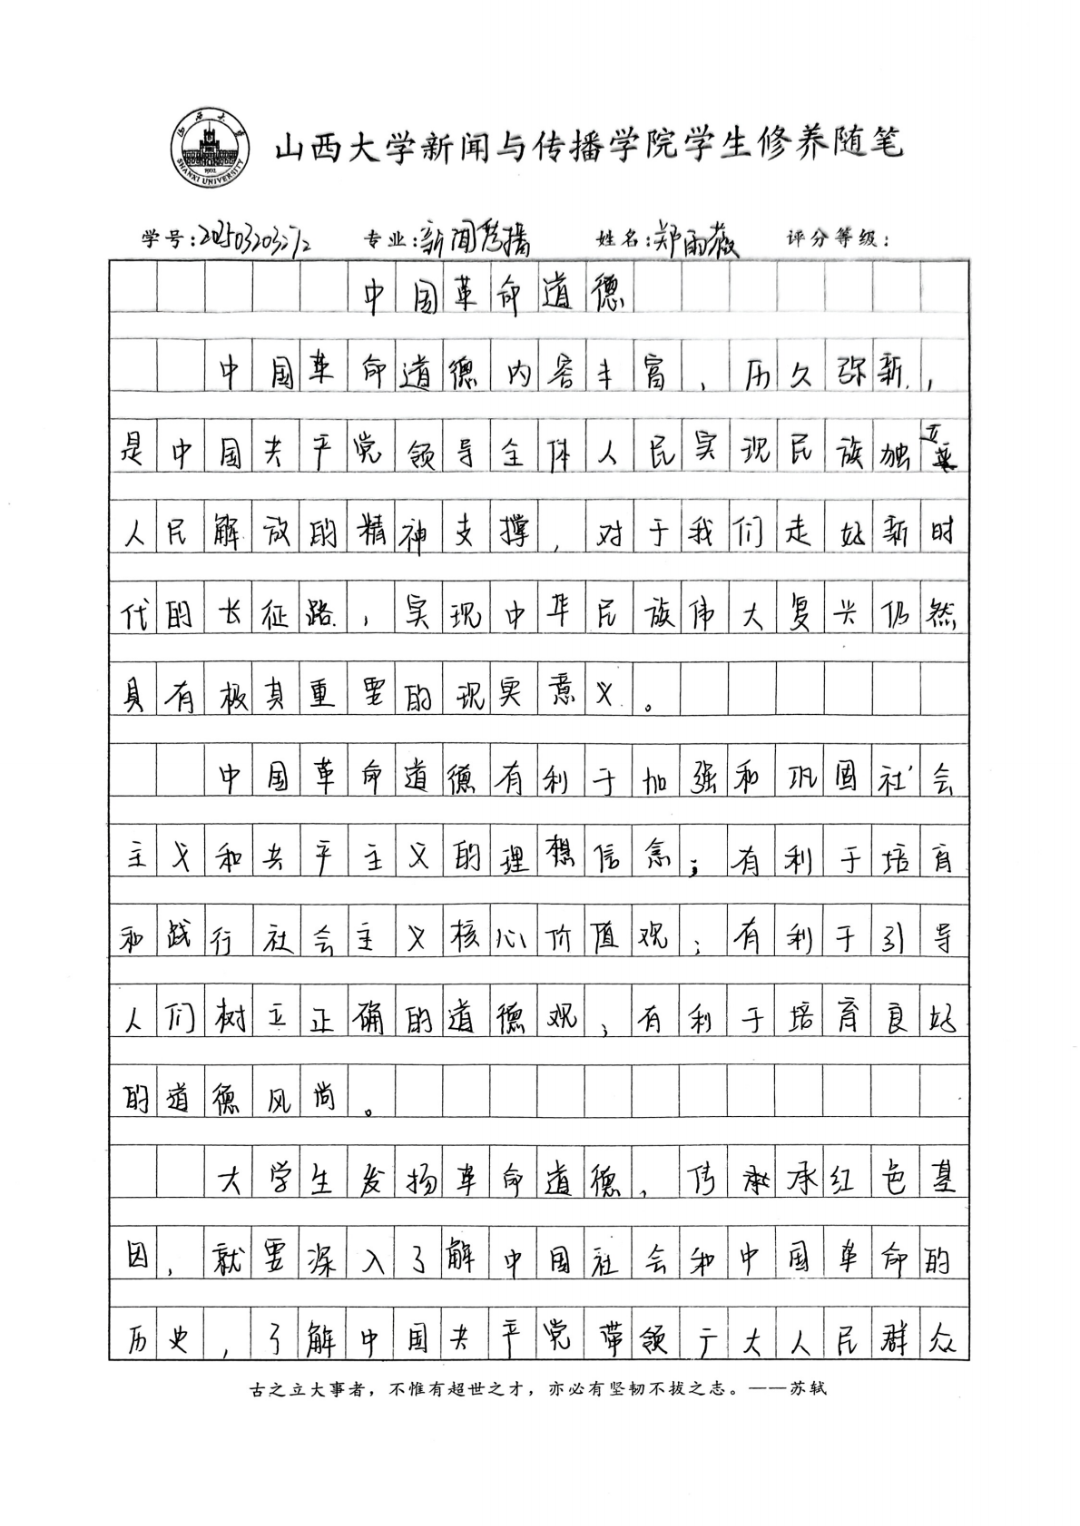 山西大学
SHANXI UNIVERSITY
1902
山西大学新闻与传播学院学生修养随笔
学号: 专业:新闻传播 姓名:郑雨薇 评分等级:
中国革命道德
中国革命道德内容丰富,历久弥新,
是中国共平党领导全体人民实现民族独立
人民解放的精神支撑,对于我们走好新时
代的长征路,实现中华民族伟大复兴仍然
具有极其重要的现实意义。
中国革命道德有利于加强和巩固社会
主义和共平主义的理想信念;有利于培育
和践行社会主义核心价值观;有利于引导
人们树立正确的道德观;有利于培育良好
的道德风尚。
大学生发扬革命道德,传承红色基
因,就要深入了解中国社会和中国革命的
历史,了解中国共平党带领广大人民群众
古之立大事者,不惟有超世之才,亦必有坚韧不拔之志。——苏轼